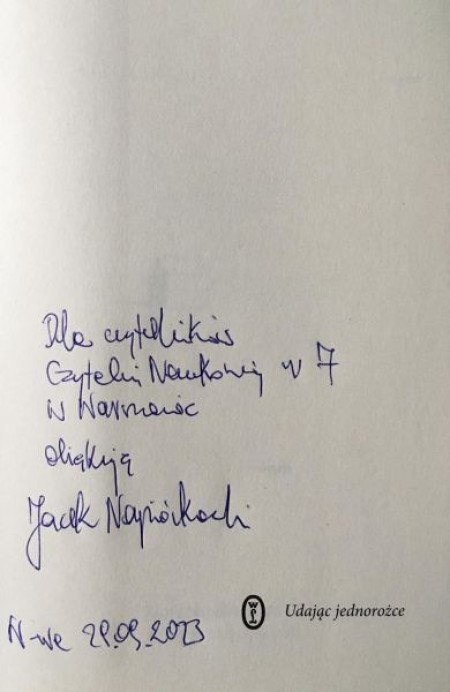 Dla czytelników
Czytelni Naukowej nr 7
w Warszawie
dziękuję
Jacek Napiórkowski
Udając jednorożce
W-wa 29.09.2023